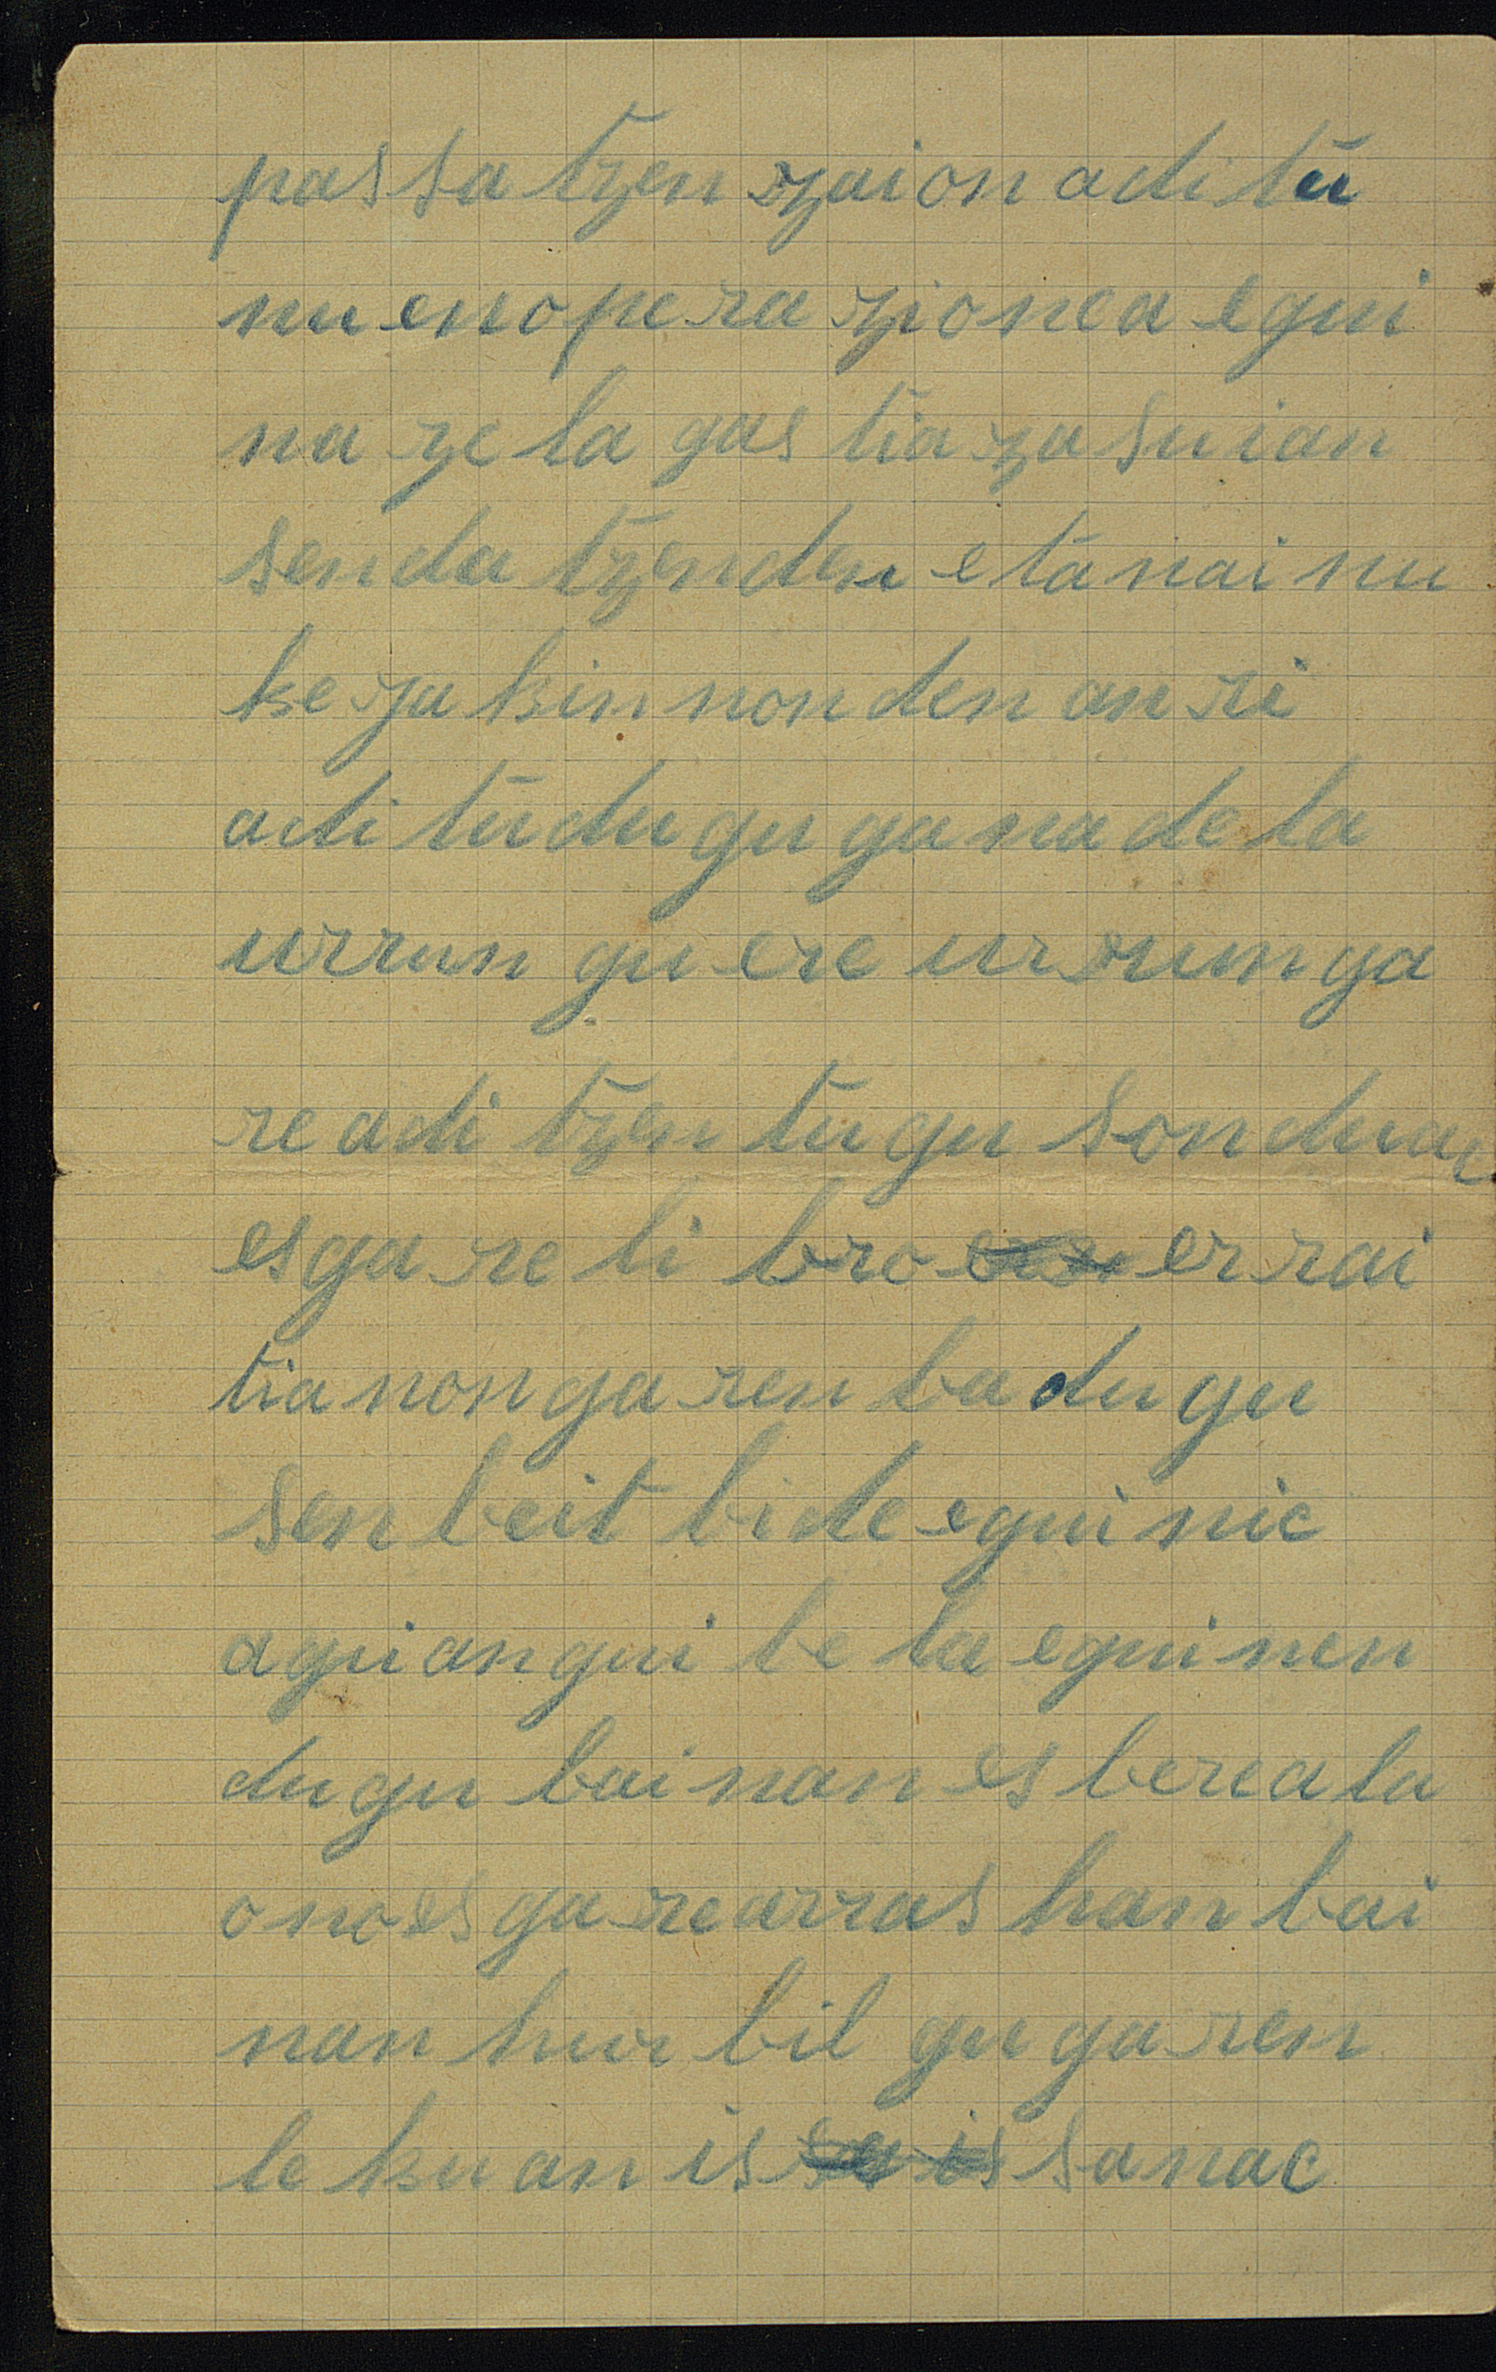 passatzen zaion aditu
nuen operazionea egui
nazela gastiaza suian
sendatzenden eta nai nu
ke jakin nonden anri
aditu dugu ganadela
urrun gu ere urrunga
re aditzen tugu sonduac
esgare libro errai
tia nongaren badugu
senbeit bide eguinic
agui angui beta eguinen
dugu bainan es bereala
ono esgare arras han bai
nan hurbil gu garen
lekuan is sanac